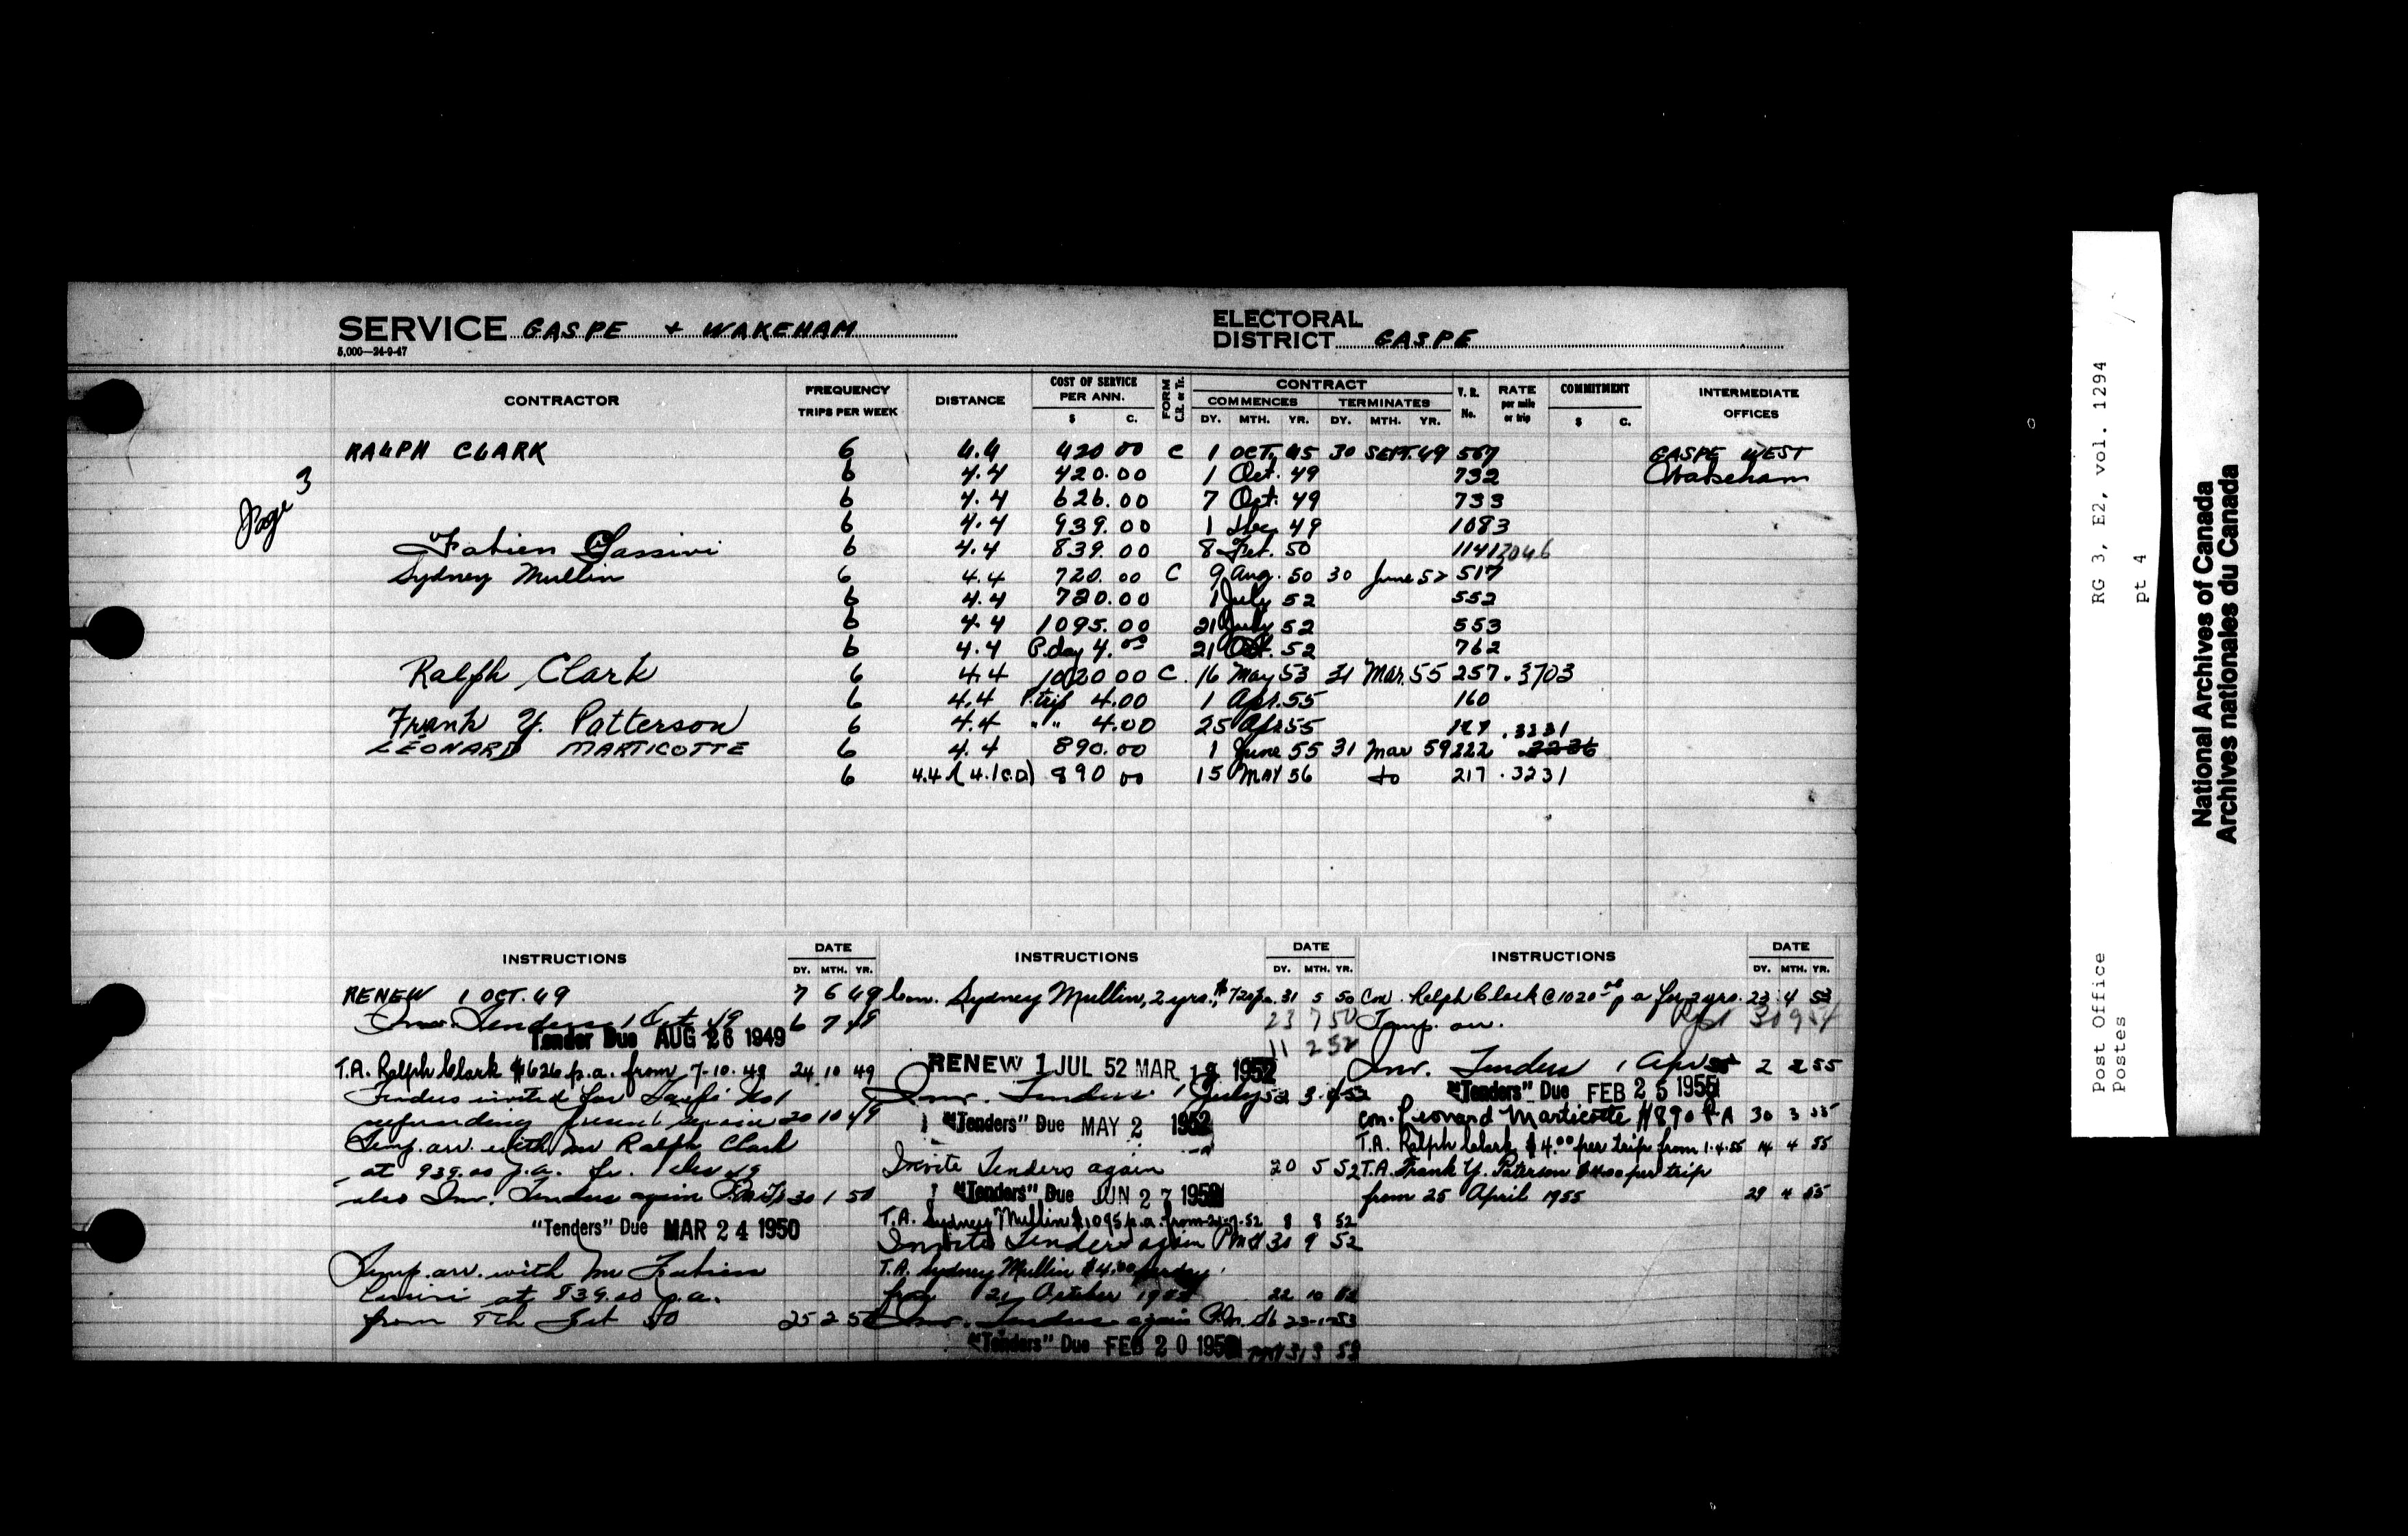 SERVICE GASPE + WAKEHAM
5,000—24-9-47
ELECTORAL DISTRICT GASPE
CONTRACTOR FREQUENCY TRIPS PER WEEK DISTANCE COST OF SERVICE PER ANN. $ C. FORM C.R. or Tr. CONTRACT COMMENCES DY. MTH. YR. TERMINATES DY. MTH. YR. V.R. No. RATE per mile or trip COMMITMENT $ C. INTERMEDIATE OFFICES
RALPH CLARK 6 4.4 420 00 C 1 OCT. 45 30 SEPT. 49 567 GASPE WEST
6 4.4 420.00 1 Oct. 49 732 Wakeham
Page 3
6 4.4 626.00 7 Oct. 49 733
6 4.4 939.00 1 Dec 49 1083
Fabien Cassivi 6 4.4 839.00 8 Feb. 50 1141
Sydney Mullin 6 4.4 720.00 C 9 Aug. 50 30 June 52 517
6 4.4 720.00 1 July 52 552
6 4.4 1095.00 21 July 52 553
6 4.4 P.day 4.00 21 Oct. 52 762
Ralph Clark 6 4.4 1020 00 C. 16 May 53 31 Mar. 55 257 .3703
6 4.4 P.trip 4.00 1 Apr. 55 160
Frank Y. Patterson 6 4.4 " " 4.00 25 Apr 55 .3231
LEONARD MARTICOTTE 6 4.4 890.00 1 June 55 31 Mar 59 222
6 4.4 (4.1 c.a) 890 00 15 MAY 56 do 217 .3231
INSTRUCTIONS DATE DY. MTH. YR. INSTRUCTIONS DATE DY. MTH. YR. INSTRUCTIONS DATE DY. MTH. YR.
RENEW 1 OCT. 49 7 6 49
Inv. Tenders 1 Oct 49 6 7 49
Tender Due AUG 26 1949
T.A. Ralph Clark $626 p.a. from 7-10-49 24 10 49
Tenders invited for
20 10 49
Temp. arr. with Mr Ralph Clark
at 939.00 p.a. fr. 1 Dec 49
also Inv. Tenders again 30 1 50
"Tenders" Due MAR 24 1950
Temp. arr. with Mr Fabien
Cassivi at 839.00 p.a.
from 8th Feb 50 25 2 50
Con. Sydney Mullin, 2 yrs., $720 p.a. 31 5 50
23 7 50
11 2 52
RENEW 1 JUL 52 MAR 1952
Inv. Tenders 1 July 52
"Tenders" Due MAY 2 1952
Invite Tenders again 20 5 52
"Tenders" Due JUN 27 1952
T.A. Sydney Mullin $1095 p.a. from 21-7-52 8 8 52
Invite Tenders again 30 9 52
T.A. Sydney Mullin $4.00 per day
from 21 October 1952 22 10 52
Inv. Tenders again 23-1-53
"Tenders" Due FEB 20 1953
Con. Ralph Clark @ 1020.00 p a for 2 yrs. 23 4 53
Temp. arr. 30 9 54
Inv. Tenders 1 Apr 55 2 2 55
"Tenders" Due FEB 25 1955
Con. Leonard Marticotte $890 P.A 30 3 55
T.A. Ralph Clark $4.00 per trip from 1-4-55 14 4 55
T.A. Frank Y. Paterson $4.00 per trip
from 25 April 1955 29 4 55
Post Office RG 3, E2, vol. 1294
Postes pt 4
National Archives of Canada
Archives nationales du Canada